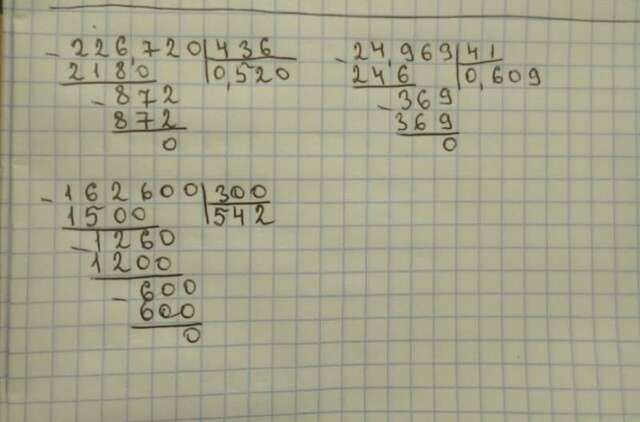 - 226,720 | 436
2180 | 0,520
- 872
872
0
- 24,969 | 41
246 | 0,609
- 369
369
0
- 162600 | 300
1500 | 542
- 1260
1200
- 600
600
0